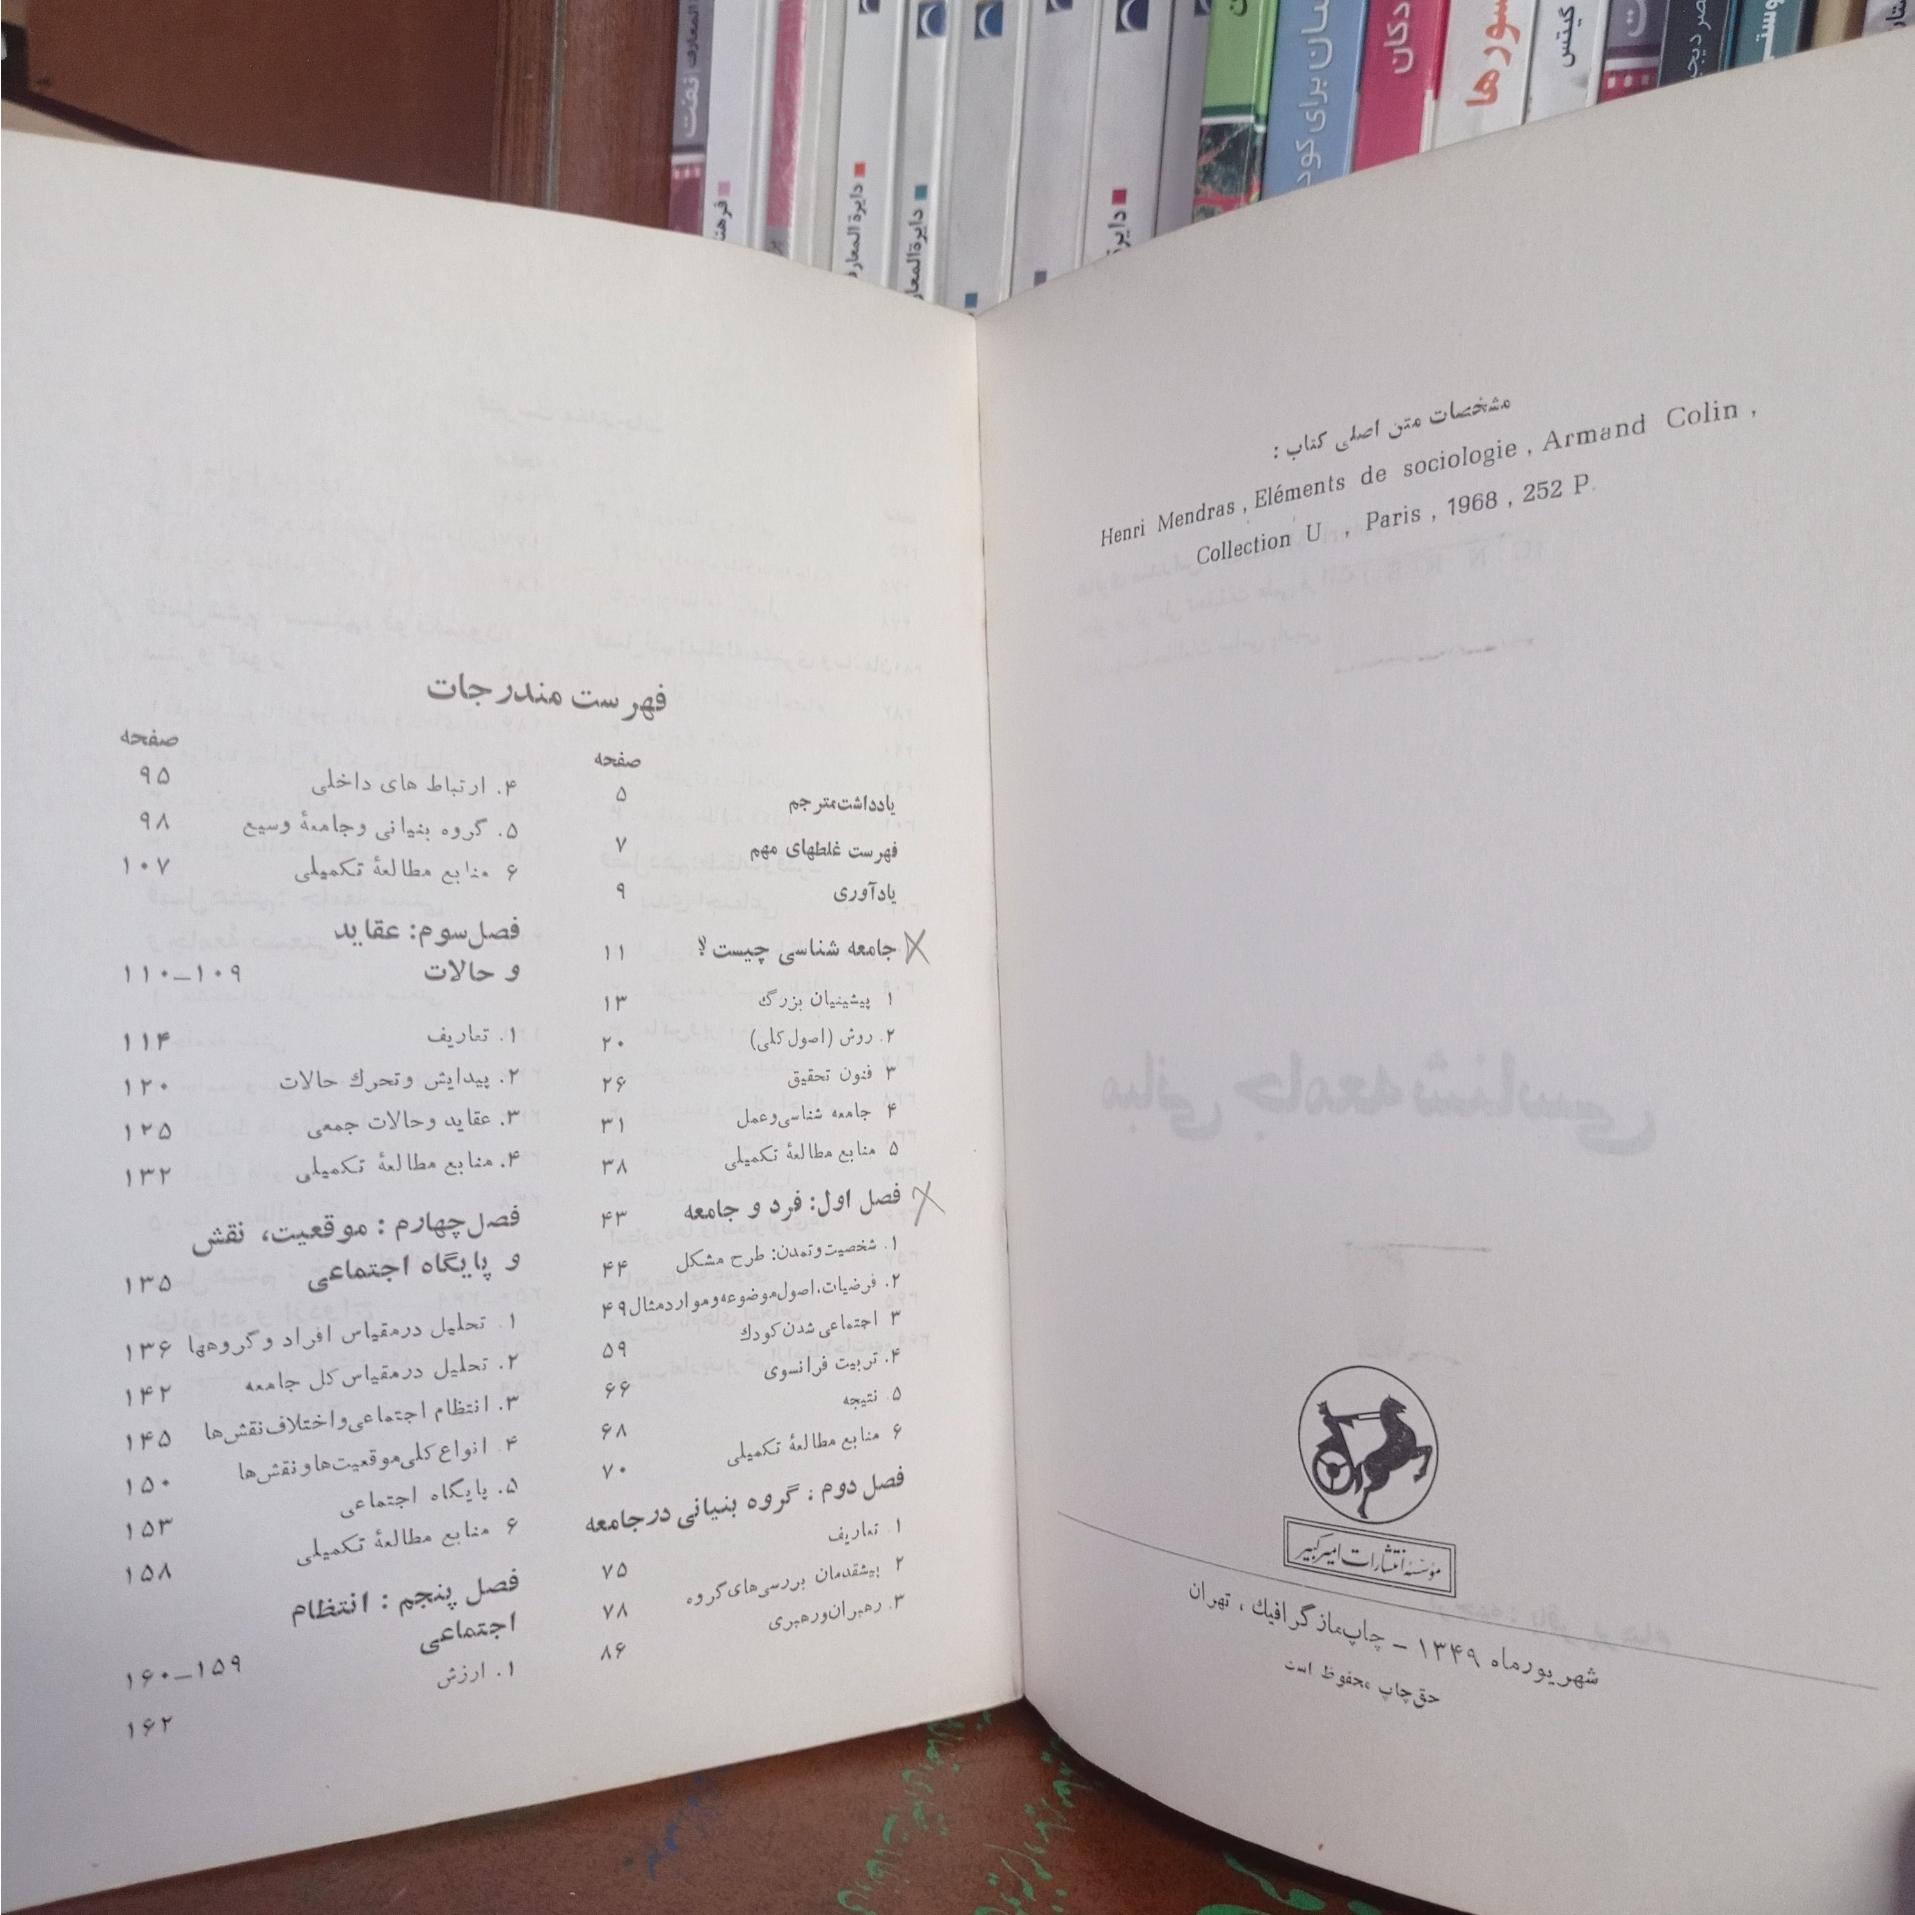 مشخصات متن اصلی کتاب :
Henri Mendras , Eléments de sociologie , Armand Colin ,
Collection U , Paris , 1968 , 252 P.
مؤسسهٔ انتشارات امیرکبیر
شهریورماه ۱۳۴۹ – چاپ‌مازگرافیك ، تهران
حق‌چاپ محفوظ است
فهرست مندرجات
صفحه
یادداشت‌مترجم ۵
فهرست غلطهای مهم ۷
یادآوری ۹
جامعه شناسی چیست؟ ۱۱
۱ پیشینیان بزرگ ۱۳
۲. روش (اصول‌کلی) ۲۰
۳ فنون تحقیق ۲۶
۴ جامعه شناسی‌وعمل ۳۱
۵ منابع مطالعهٔ تکمیلی ۳۸
فصل اول: فرد و جامعه ۴۳
۱. شخصیت‌وتمدن: طرح مشکل ۴۴
۲. فرضیات، اصول‌موضوعه‌ومواردمثال ۴۹
۳ اجتماعی شدن‌کودك ۵۹
۴. تربیت فرانسوی ۶۶
۵ نتیجه ۶۸
۶ منابع مطالعهٔ تکمیلی ۷۰
فصل دوم : گروه بنیانی درجامعه
۱ تعاریف ۷۵
۲ پیشقدمان بررسی‌های‌گروه ۷۸
۳. رهبران‌ورهبری ۸۶
صفحه
۴. ارتباط های داخلی ۹۵
۵. گروه بنیانی وجامعهٔ وسیع ۹۸
۶ منابع مطالعهٔ تکمیلی ۱۰۷
فصل‌سوم: عقاید
و حالات ۱۰۹–۱۱۰
۱. تعاریف ۱۱۴
۲. پیدایش وتحرك حالات ۱۲۰
۳. عقاید وحالات جمعی ۱۲۵
۴. منابع مطالعهٔ تکمیلی ۱۳۲
فصل‌چهارم : موقعیت، نقش
و پایگاه اجتماعی ۱۳۵
۱. تحلیل درمقیاس افراد وگروهها ۱۳۶
۲. تحلیل درمقیاس‌کل جامعه ۱۴۲
۳. انتظام اجتماعی‌واختلاف‌نقش‌ها ۱۴۵
۴. انواع‌کلی‌موقعیت‌هاونقش‌ها ۱۵۰
۵. پایگاه اجتماعی ۱۵۳
۶ منابع مطالعهٔ تکمیلی ۱۵۸
فصل پنجم : انتظام
اجتماعی ۱۵۹–۱۶۰
۱. ارزش ۱۶۲
نفت
دایرة المعارف
دایرةالمعار
سان برای کود
دکان
سورها
کیتس